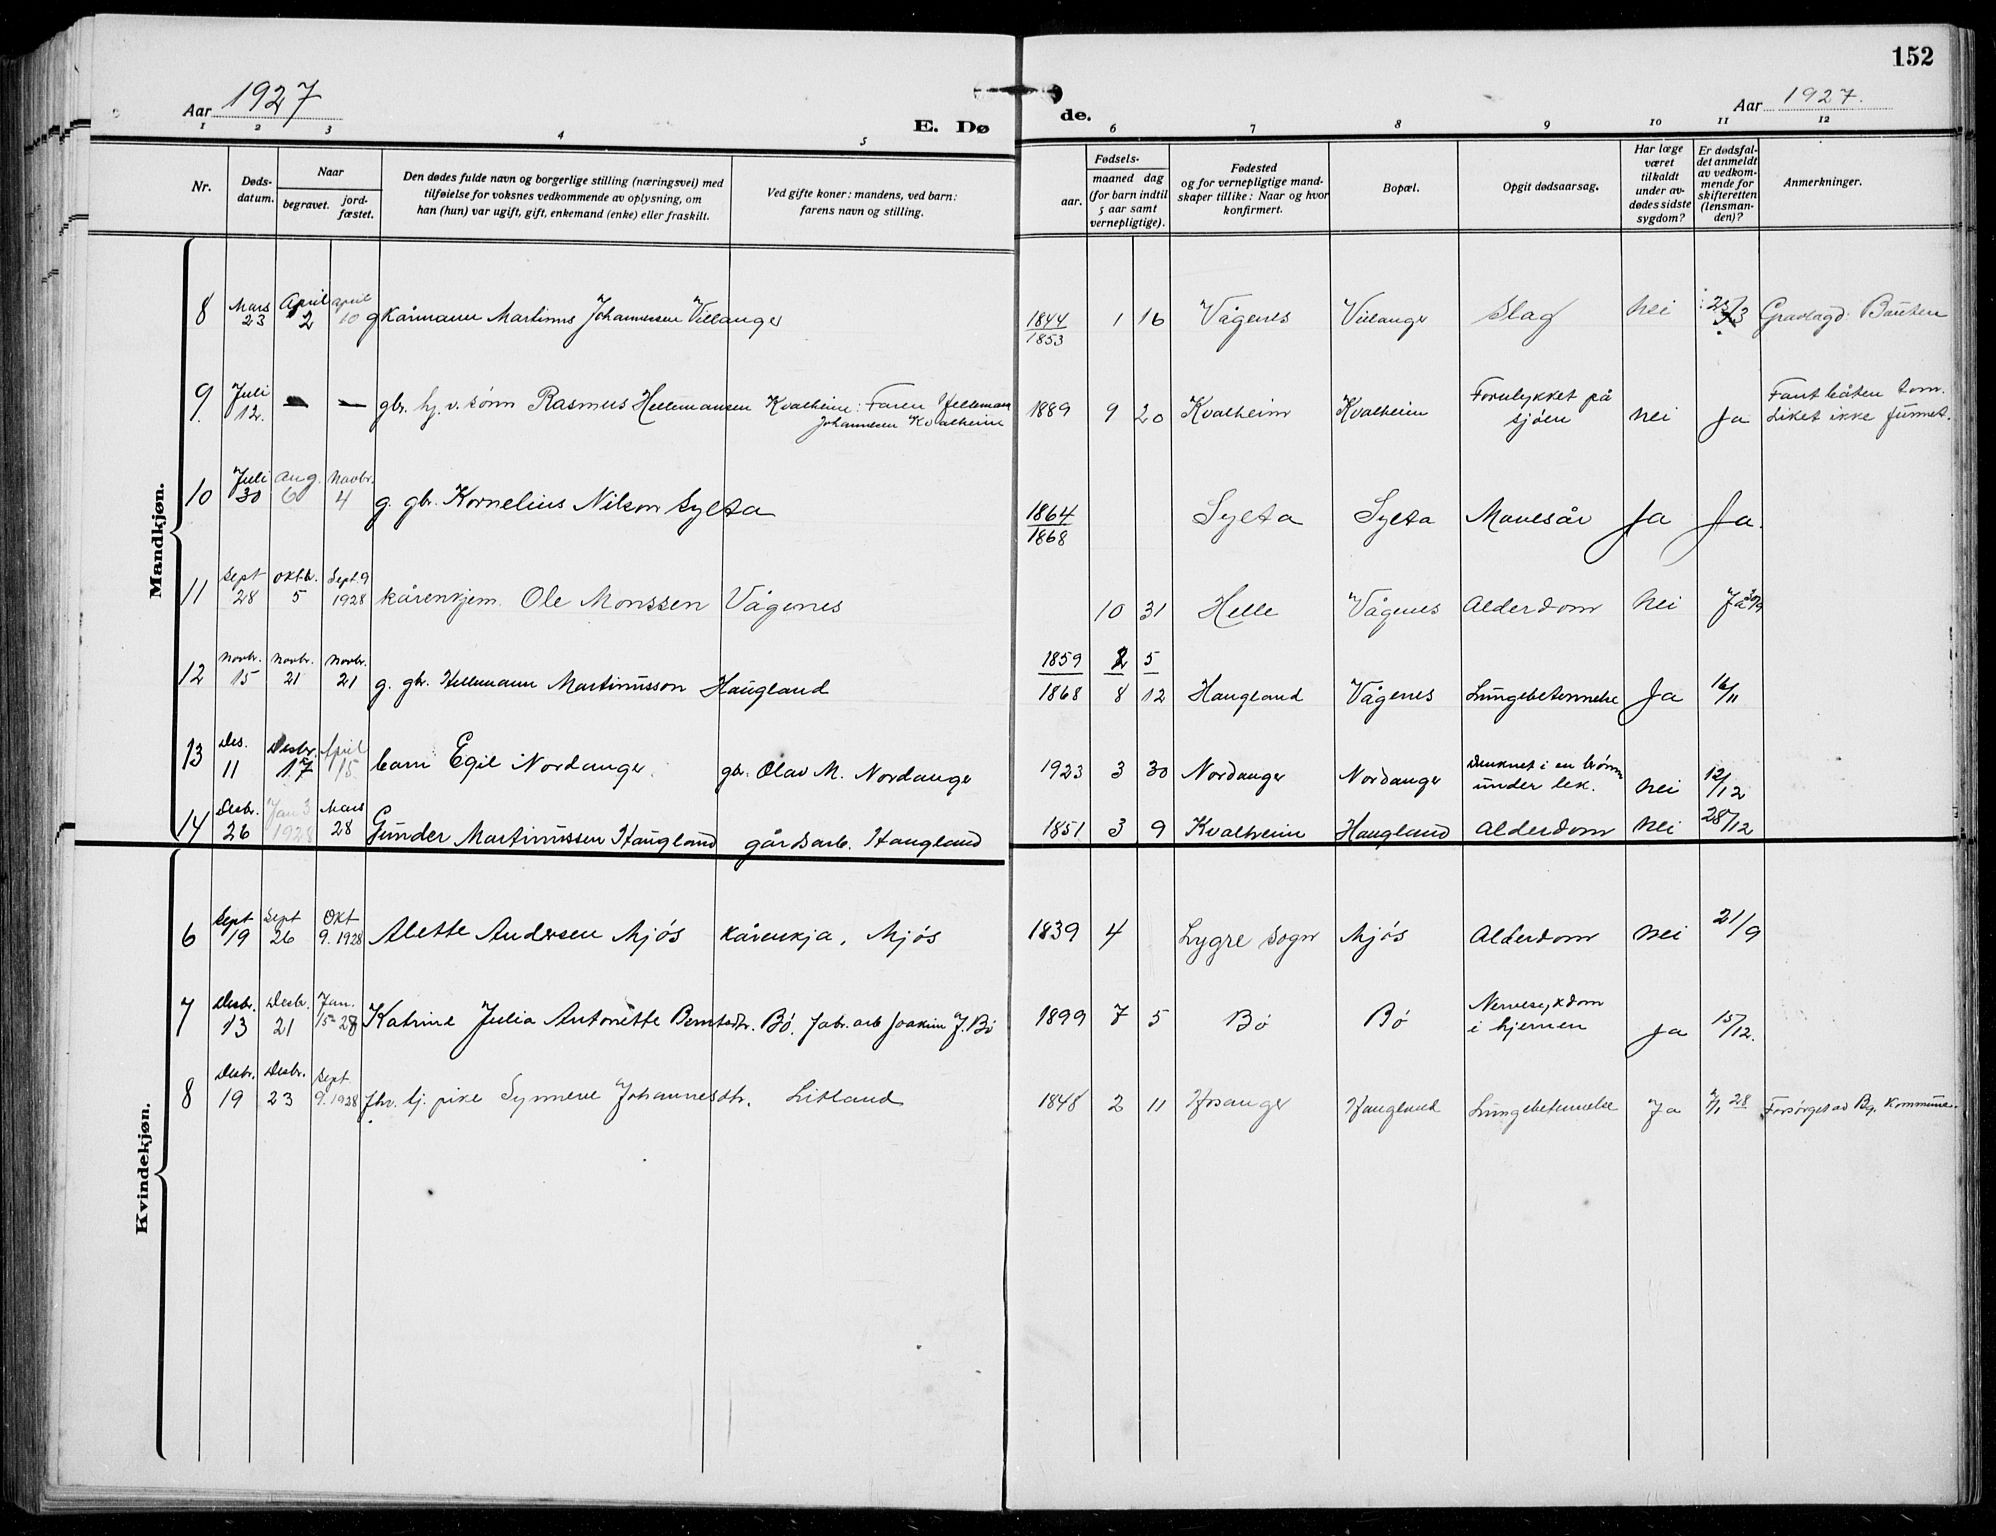 152
Aar 1927
Aar 1927.
E. Dø
de.
1 2 3 4 5 6 7 8 9 10 11 12
Nr.
Døds-
datum.
Naar
begravet.
jord-
fæstet.
Den dødes fulde navn og borgerlige stilling (næringsvei) med
tilføielse for voksnes vedkommende av oplysning, om
han (hun) var ugift, gift, enkemand (enke) eller fraskilt.
Ved gifte koner: mandens, ved barn:
farens navn og stilling.
Fødsels-
aar.
maaned dag
(for barn indtil
5 aar samt
vernepligtige).
Fødested
og for vernepligtige mand-
skaper tillike: Naar og hvor
konfirmert.
Bopæl.
Opgit dødsaarsag.
Har læge
været
tilkaldt
under av-
dødes sidste
sygdom?
Er dødsfal-
det anmeldt
av vedkom-
mende for
skifteretten
(lensman-
den)?
Anmerkninger.
Mandkjøn.
8 Mars 23 April 2 april 10 g kårmann Martinus Johannessen Villanger 1844 1853 1 16 Vågenes Villanger Slag Nei Gravlagd
9 Juli 12. — — gbr. hj. v. sønn Rasmus Hellemansen Kvalheim: Faren Hellemann
Johannesen Kvalheim 1889 9 20 Kvalheim Kvalheim Forulykket på
sjøen Nei Ja Fant båten tom.
Liket ikke funnet.
10 Juli 30 Aug. 6 Novbr. 4 g. gbr. Kornelius Nilson Sylta 1864 1868 Sylta Sylta Mavesår Ja Ja.
11 Sept 28 Oktb. 5 Sept. 9 1928 kårenkjem. Ole Monssen Vågenes 10 31 Helle Vågenes Alderdom Nei Ja 30/9
12 Novbr. 15 Novbr. 21 Novbr. 21 g. gbr. Hellemann Martinusson Haugland 1859 2 5 1868 8 12 Haugland Vågenes Lungebetennelse Ja 16/11
13 Des. 11 Desbr. 17 April 15. barn Egil Nordanger. gbr. Olav M. Nordanger 1923 3 30 Nordanger Nordanger Druknet i en brønn
under lek. Nei 12/12
14 Desbr. 26 Jan 3 1928 Mars 28 Gunder Martinussen Haugland gårdsarb. Haugland 1851 3 9 Kvalheim Haugland Alderdom Nei 28/12
Kvindekjøn.
6 Sept 19 Sept 26 Okt 9. 1928 Alette Andersen Mjøs kårenkja, Mjøs 1839 4 Lygre sogn Mjøs Alderdom Nei 21/9
7 Desbr. 13 Desbr. 21 Jan. 15 - 28 Katrine Julia Antonette Berntsdtr. Bø. fabr. arb Joakim J. Bø 1899 7 5 Bø Bø Nervesykdom
i hjernen Ja 15/12.
8 Desbr. 19 Desbr. 23 Sept 9. 1928 fhv. tj. pike Synneve Johannesdtr. Litland 1848 2 11 Hosanger Haugland Lungebetennelse Ja 28 Forsørget av Bg. Kommune.